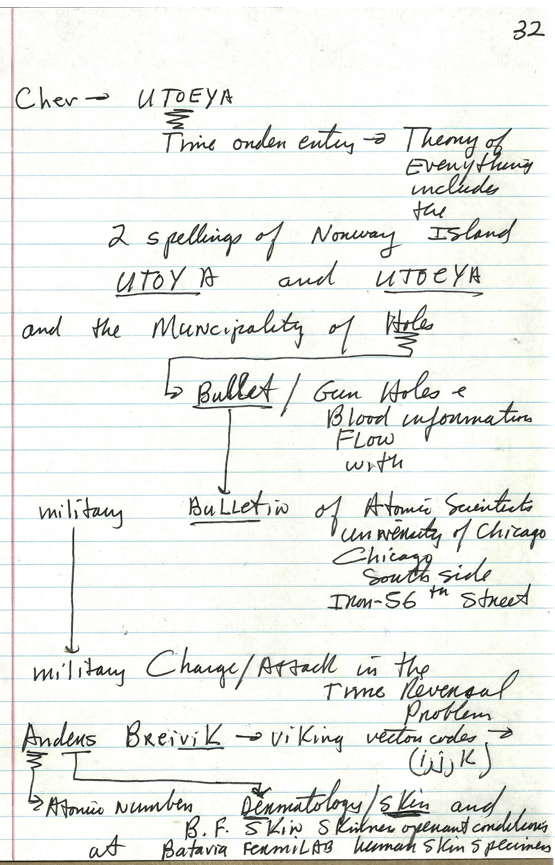 32
Cher → UTOEYA
Time onden entry → Theory of
Everything
includes
the
2 spellings of Nonway Island
UTOYA and UTOEYA
and the Municipality of Holes
Bullet / Gun Holes e
Blood information
Flow
with
military Bulletin of Atomic Scientists
University of Chicago
Chicago
South side
Iron-56 th Street
military Charge/Attack in the
Time Revensal
Problem
Andens BReiviK → viking vecton codes →
(i, j, K)
Atomic Number Denmatology/Skin and
B.F. Skin Skinner openant conditions
at Batavia FermiLAB human skin specimens